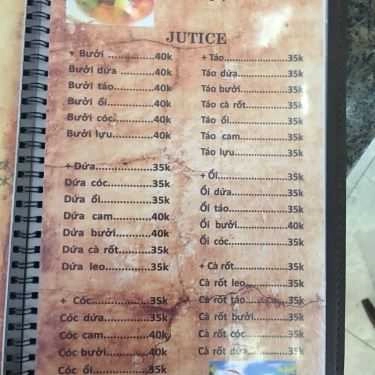 JUTICE
+ Bưởi ..............40k
Bưởi dứa ..........40k
Bưởi táo...........40k
Bưởi ổi.............40k
Bưởi cóc...........40k
Bưởi lựu...........40k
+ Dứa...............35k
Dứa cóc...........35k
Dứa ổi.............35k
Dứa cam..........40k
Dứa bưởi..........40k
Dứa cà rốt........35k
Dứa leo............35k
+ Cóc..............35k
Cóc dứa...........35k
Cóc cam...........40k
Cóc bưởi..........40k
Cóc ổi.............35k
+ Táo................35k
Táo dứa.............35k
Táo bưởi............35k
Táo cà rốt..........35k
Táo ổi................35k
Táo cam............40k
Táo lựu..............35k
+ Ổi..................35k
Ổi dứa...............35k
Ổi táo................35k
Ổi bưởi..............40k
Ổi cóc...............35k
+ Cà rốt.............35k
Cà rốt leo...........35k
Cà rốt táo..........35k
Cà rốt bưởi.........35k
Cà rốt cóc...........35k
Cà rốt dứa..........35k